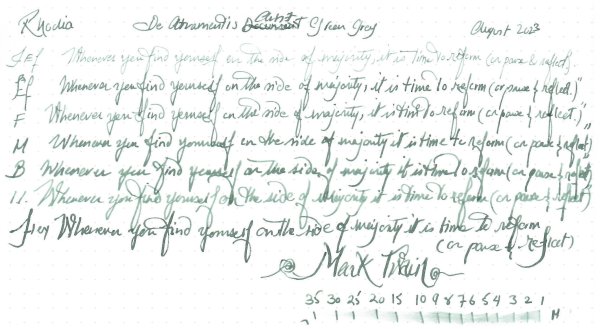 Rhodia De Atramentis Document Artist Green Grey August 2023
JEf Whenever you find yourself on the side of majority, it is time to reform (or pause & reflect).
Ef Whenever you find yourself on the side of majority, it is time to reform (or pause & reflect.)"
F Whenever you find yourself on the side of majority, it is time to reform (or pause & reflect.)"
M Whenever you find yourself on the side of majority it is time to reform (or pause & reflect)"
B Whenever you find yourself on the side of majority it is time to reform (or pause & reflect)"
1.1. Whenever you find yourself on the side of majority it is time to reform (or pause & reflect)"
flex Whenever you find yourself on the side of majority it is time to reform
(or pause & reflect)
Mark Twain
35 30 25 20 15 10 9 8 7 6 5 4 3 2 1
M